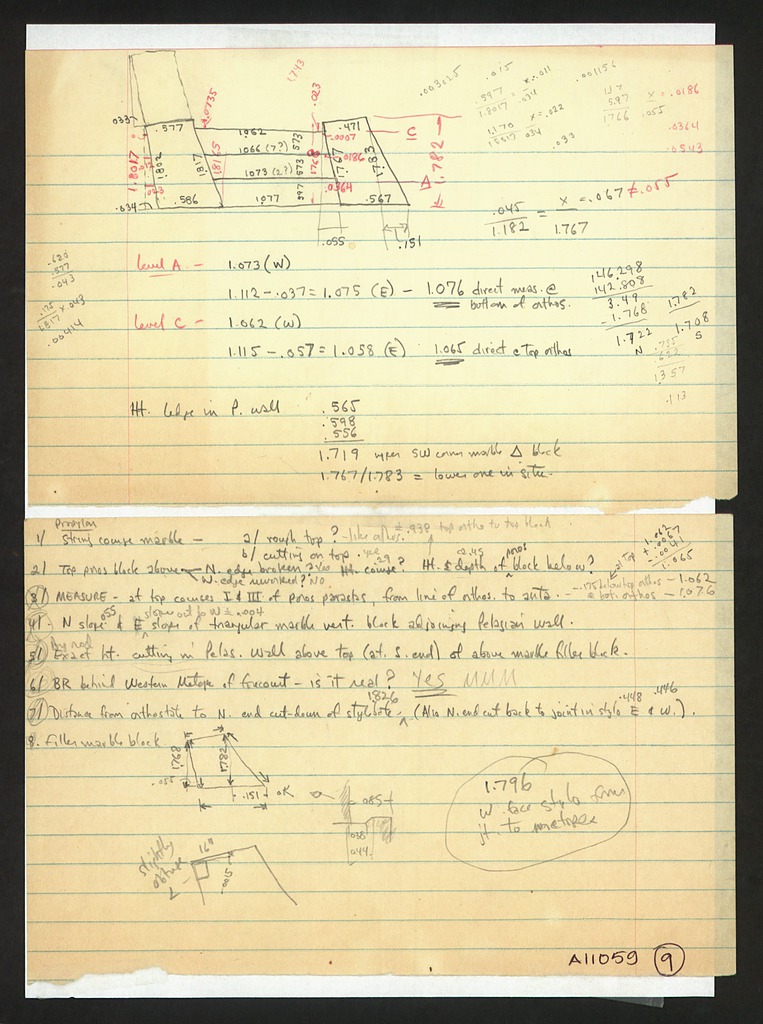 1.743
.023
.0735
.003025
.015
.597
1.8017
x = .011
.034
1.170
1.8017
x = .022
.034
.033
.001156
.597
1.766
x
.055
= .0186
.0364
.0543
.033
.577
1.062
.573
.471
.0007
C
1.066 (7?)
1.8017
1.802
1.817
1.8165
.573
1.768
.0186
1.767
1.783
1.782
1.073 (2?)
.597
.0364
A
.034
.586
1.077
.567
.055
.151
.045
1.182
=
x
1.767
= .067 ≠ .055
.620
.577
.043
.175
1.817
x .043
.00414
Level A - 1.073 (W)
1.112 - .037 = 1.075 (E) - 1.076 direct meas. @
bottom of orthos.
Level C - 1.062 (W)
1.115 - .057 = 1.058 (E) 1.065 direct @ top orthos
146.298
142.808
3.49
- 1.768
1.722
N
1.782
1.708
S
.755
.622
1.357
.113
Ht. ledge in P. wall .565
.598
.556
1.719 upper SW corner marble Δ block
1.767/1.783 = lower one in situ.
Propylon
1/ String course marble - a/ rough top? - like orthos. ± .938 top ortho to top block
b/ cutting on top.
2/ Top poros block above - N. edge broken Ht. course? .29 Ht. & depth of poros block below?
W. edge unworked? No.
1.062
+ .0067
- .0041
1.065
3/ MEASURE - at top courses I & III of poros parastas, from line of orthos. to anta. - .175 below top orthos - 1.062
@ bott. orthos - 1.076
.055 slopes out to W ± .004
4/ - N slope & E slope of triangular marble vert. block adjoining Pelasgian wall.
5/ Exact ht. cutting in Pelas. wall above top (at S. end) of above marble filler block.
6/ BR behind Western Metope of forecourt - is it real? Yes
1.826
7/ Distance from orthostate to N. end cut-down of stylobate - (Also N. end cut back to joint in stylo E & W.).
.448 .446
8. Filler marble block
1.768
1.782
.055
.151
OK
.085
.038
.044
1.796
W. face stylo from
jt. to
slightly
obtuse
L
.160
.0015
A11059 9